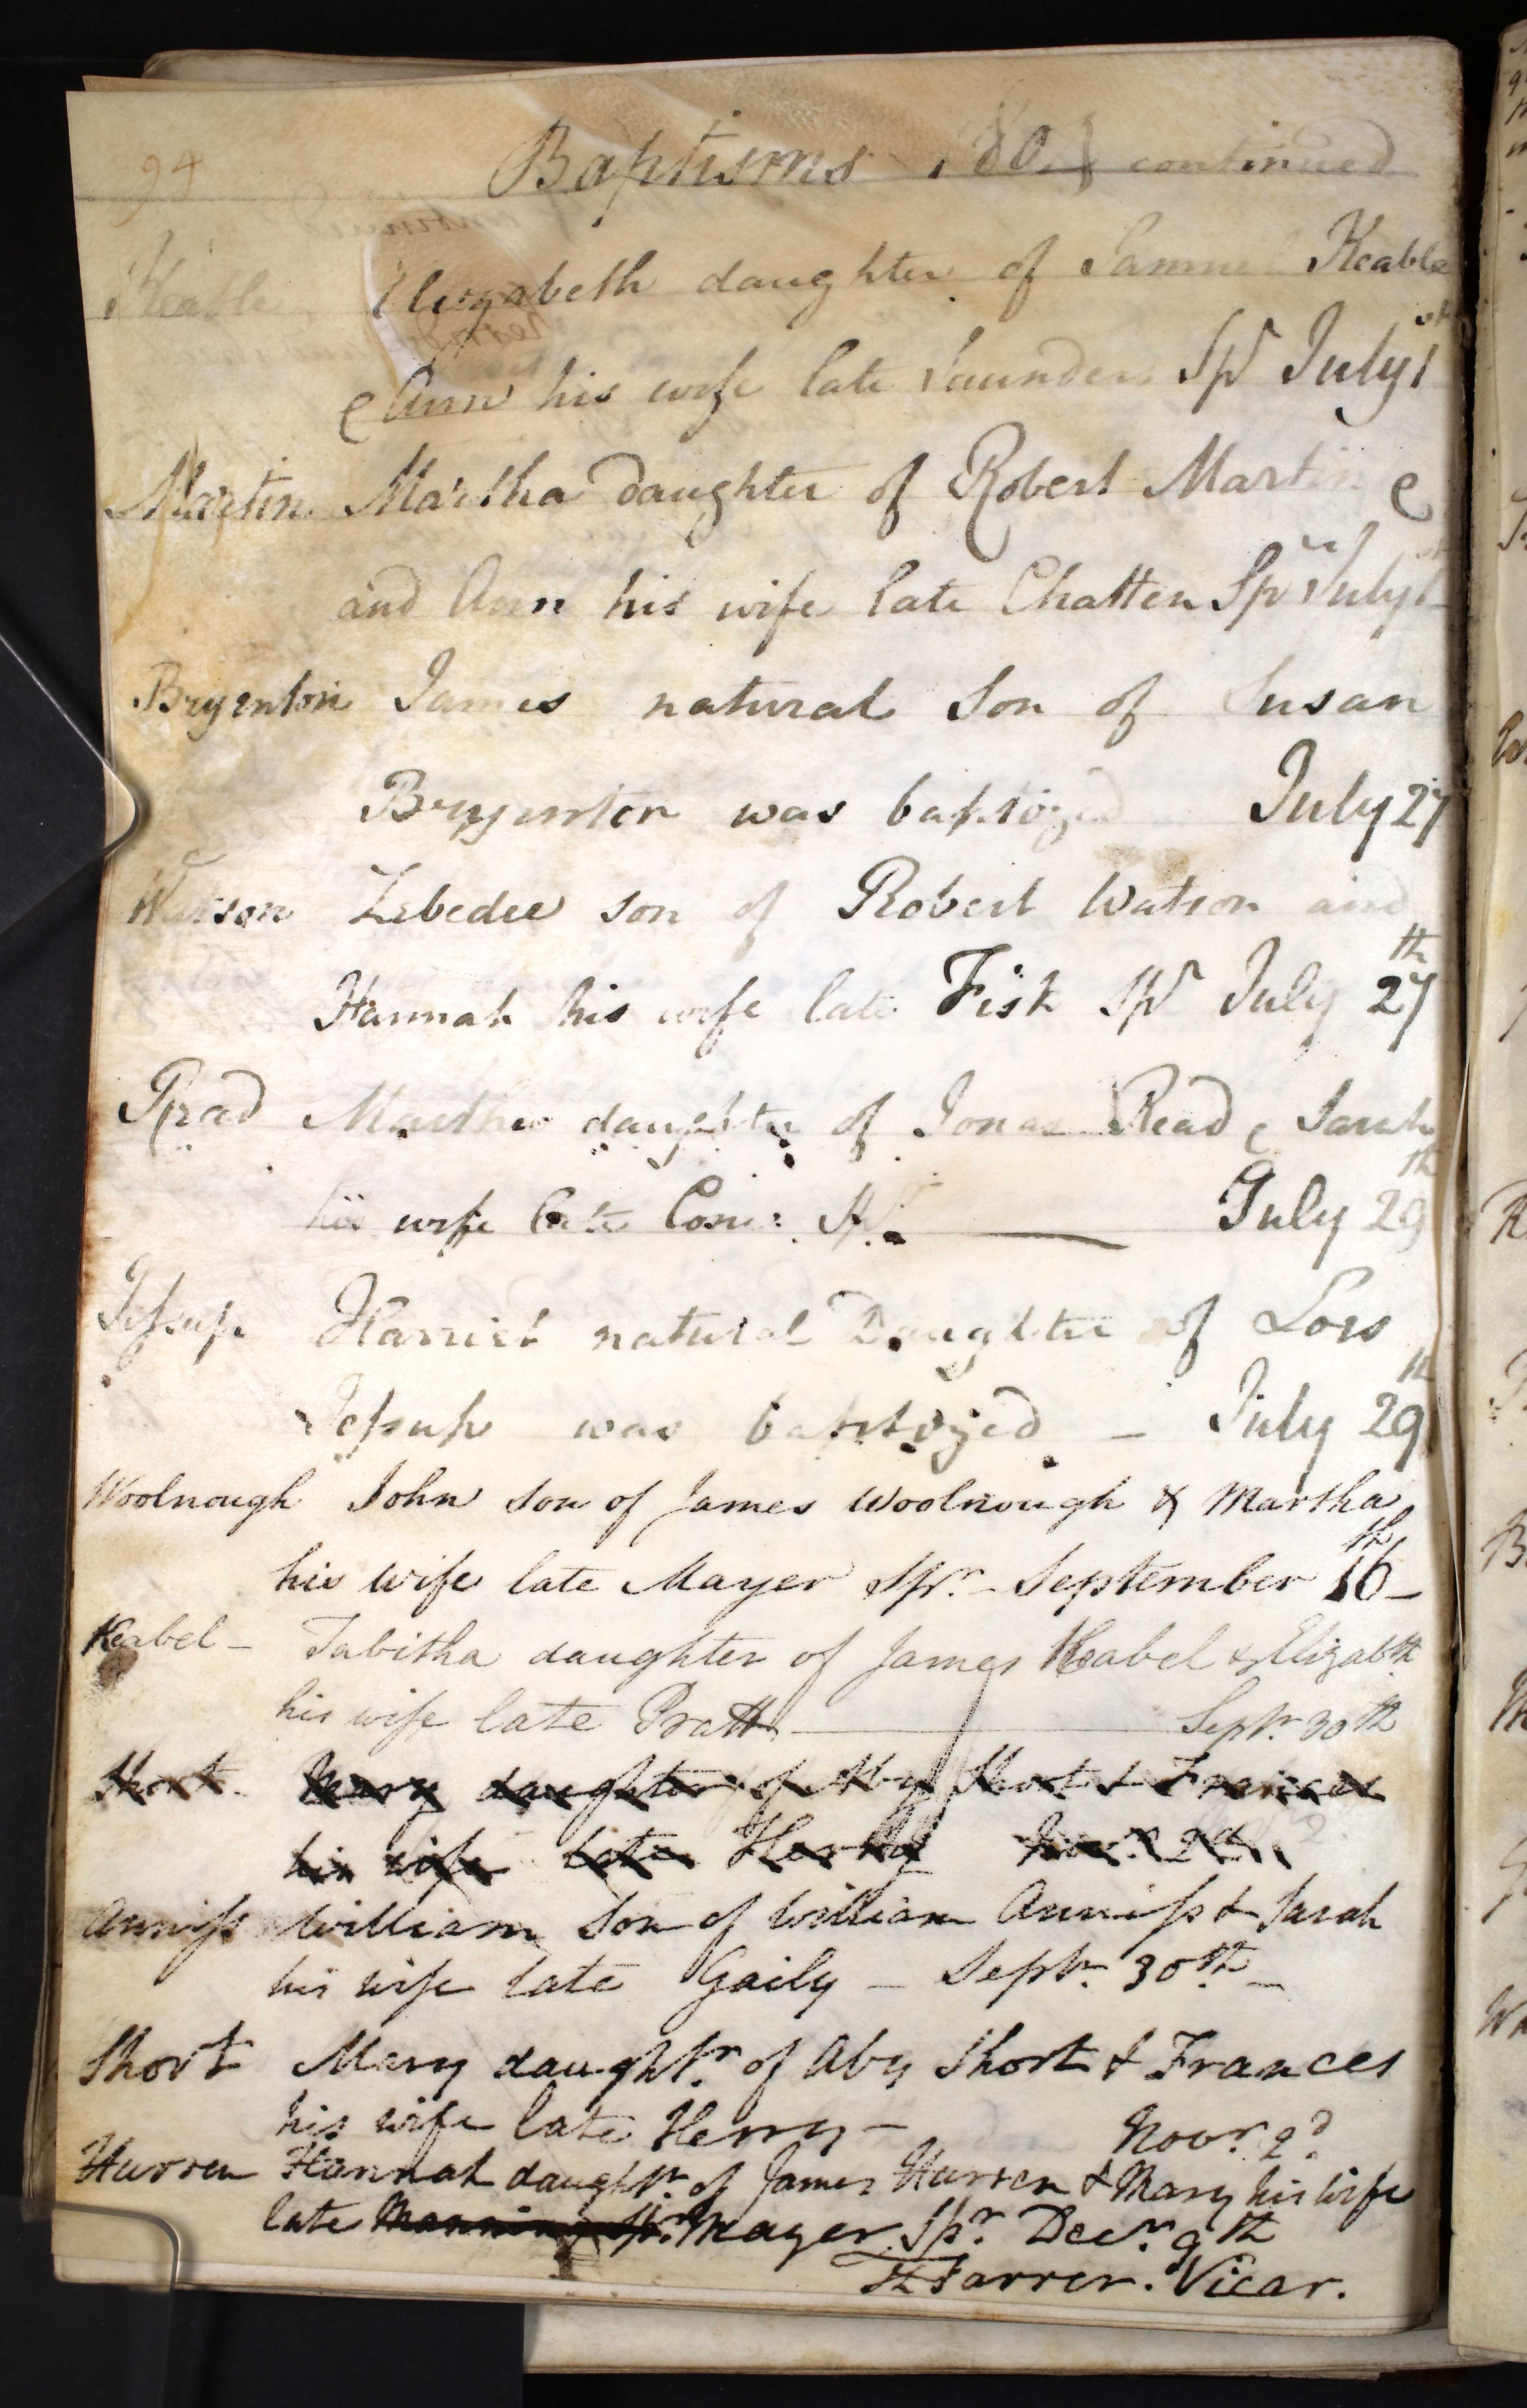 94
Baptisms 180 continued
Keable Elizabeth daughter of Samuel Keable
& Ann his wife late Saunders Spr July 1st
Martin Martha daughter of Robert Martin &
and Ann his wife late Chatten Spr July 1st
Bryenton James natural Son of Susan
Bryenton was baptized July 27
Watson Zebedee son of Robert Watson and
Hannah his wife late Fisk Spr July 27th
Read Martha daughter of Jonas Read & Sarah
his wife late July 29th
Jessup Harriet natural Daughter of Lois
Jessup was baptized – July 29th
Woolnough John son of James Woolnough & Martha
his wife late Mayer Spr. September 16th –
Keabel – Tabitha daughter of James Keabel & Elizabth
his wife late Pratt Septr. 30th
Short. Mary daughter of Aby Short & Frances
his wife late Novr. 2d
Anniss William Son of William Anniss & Sarah
his wife late Gaily – Septr. 30th –
Short Mary daughtr. of Aby Short & Frances
his wife late Henry – Novr. 2d
Hurren Hannah daughtr. of James Hurren & Mary his wife
late Manning Spr. Mayer Spr. Decr. 9th
Farrer. Vicar.